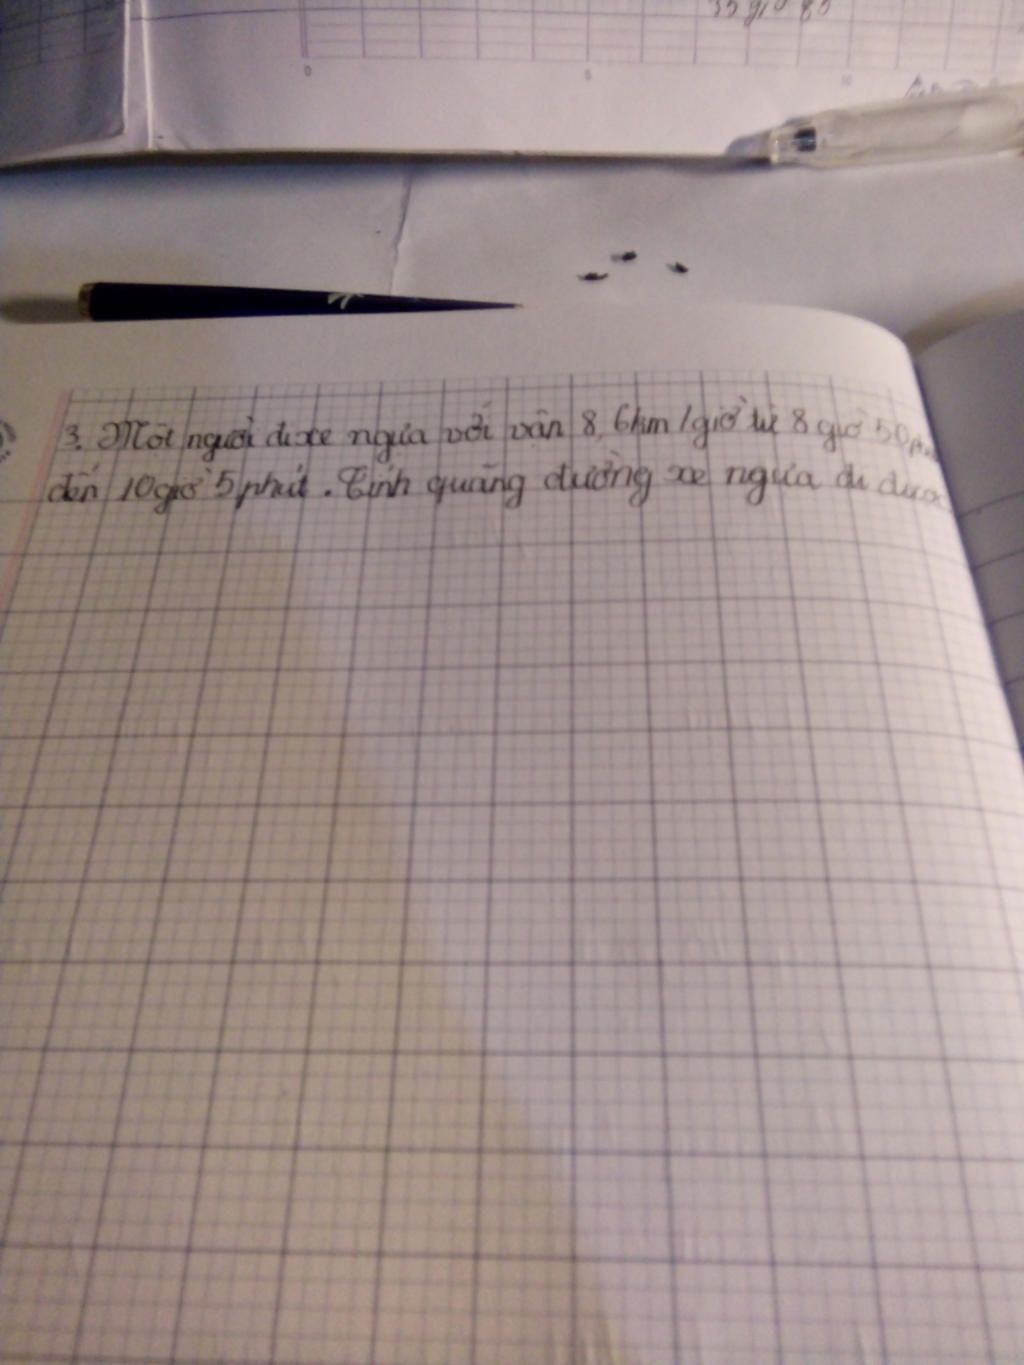 35 giờ 85
0 5 10
3. Một người đi xe ngựa với vân 8,6km/giờ từ 8 giờ 50
đến 10 giờ 5 phút. Tính quãng đường xe ngựa đi được